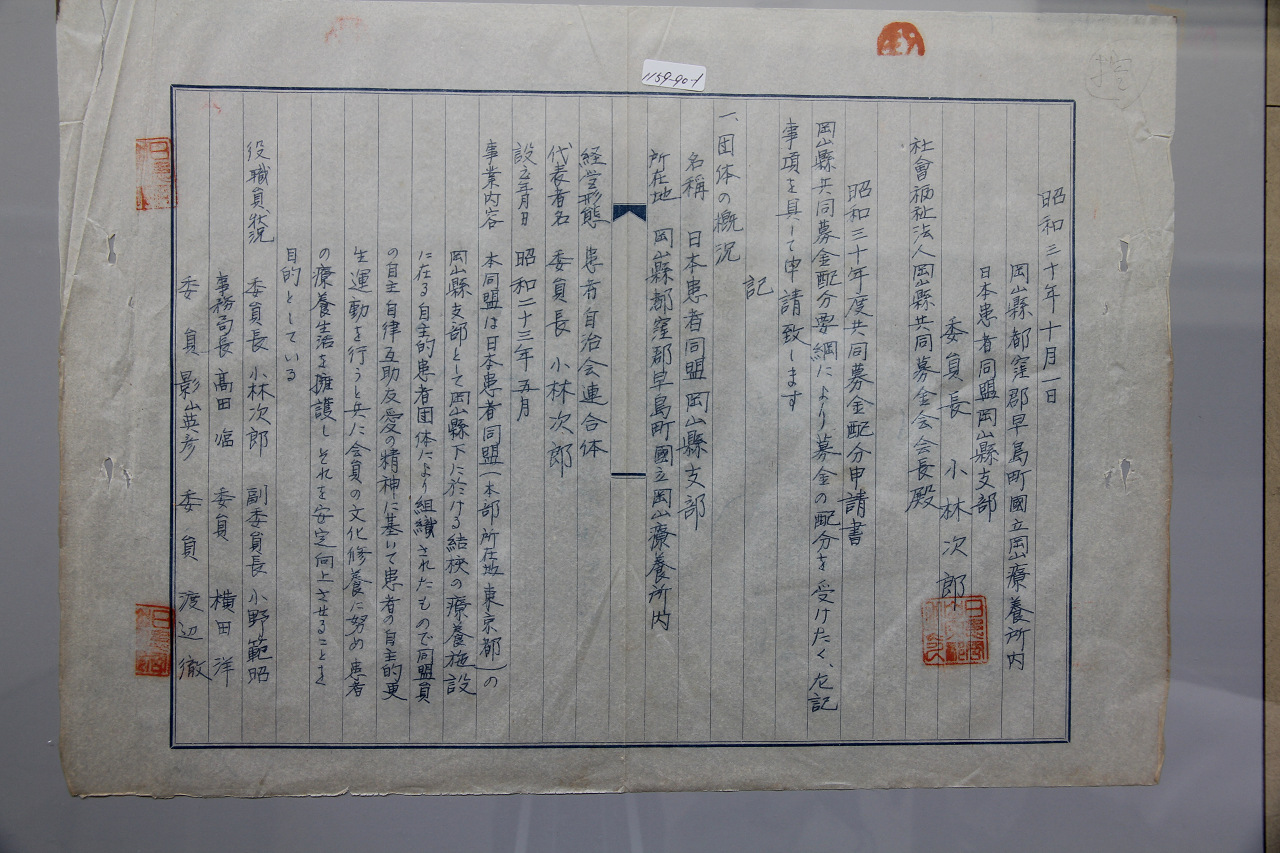 控
1159-90-1
昭和三十年十月一日
岡山縣都窪郡早島町國立岡山療養所内
日本患者同盟岡山縣支部
委員長 小林次郎
社會福祉法人岡山縣共同募金会会長殿
昭和三十年度共同募金配分申請書
岡山縣共同募金配分要綱により募金の配分を受けたく、左記
事項を具して申請致します
記
一、団体の概況
名稱 日本患者同盟岡山縣支部
所在地 岡山縣都窪郡早島町國立岡山療養所内
経営形態 患者自治会連合体
代表者名 委員長 小林次郎
設立年月日 昭和二十三年五月
事業内容 本同盟は日本患者同盟(本部所在地東京都)の
岡山縣支部として岡山縣下に於ける結核の療養施設
に在る自主的患者団体により組織されたもので同盟員
の自主自律互助友愛の精神に基いて患者の自主的更
生運動を行うと共に会員の文化修養に努め患者
の療養生活を擁護しそれを安定向上させることを
目的としている
役職員状況 委員長 小林次郎 副委員長 小野範昭
事務局長 髙田 委員 横田洋
委員 影山英彦 委員 渡辺徹